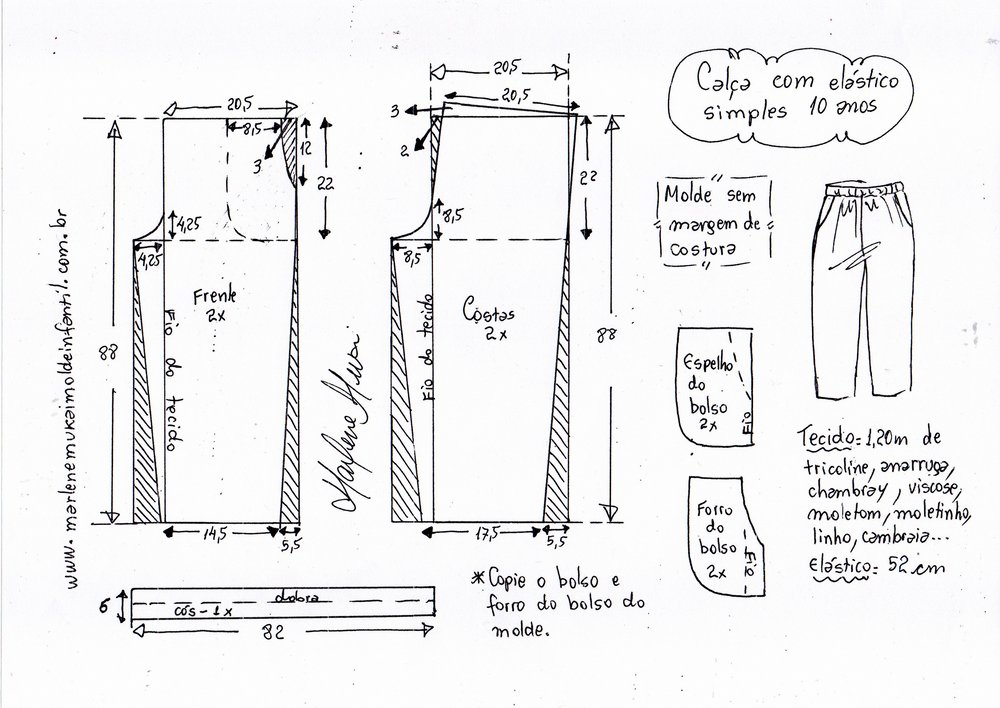 www.marlenemukaimoldeinfantil.com.br
20,5
8,5
3
12
22
4,25
4,25
Frente
2x
Fio do tecido
88
14,5
5,5
Marlene Mukai
20,5
20,5
3
2
22
8,5
8,5
Costas
2x
Fio do tecido
88
17,5
5,5
Calça com elástico
simples 10 anos
Molde sem
margem de
costura
Espelho
do
bolso
2x
Fio
Forro
do
bolso
2x
Fio
Tecido= 1,20m de
tricoline, anarruga,
chambray, viscose,
moletom, moletinho,
linho, cambraia...
Elástico= 52 cm
6
dobra
cós - 1x
82
*Copie o bolso e
forro do bolso do
molde.